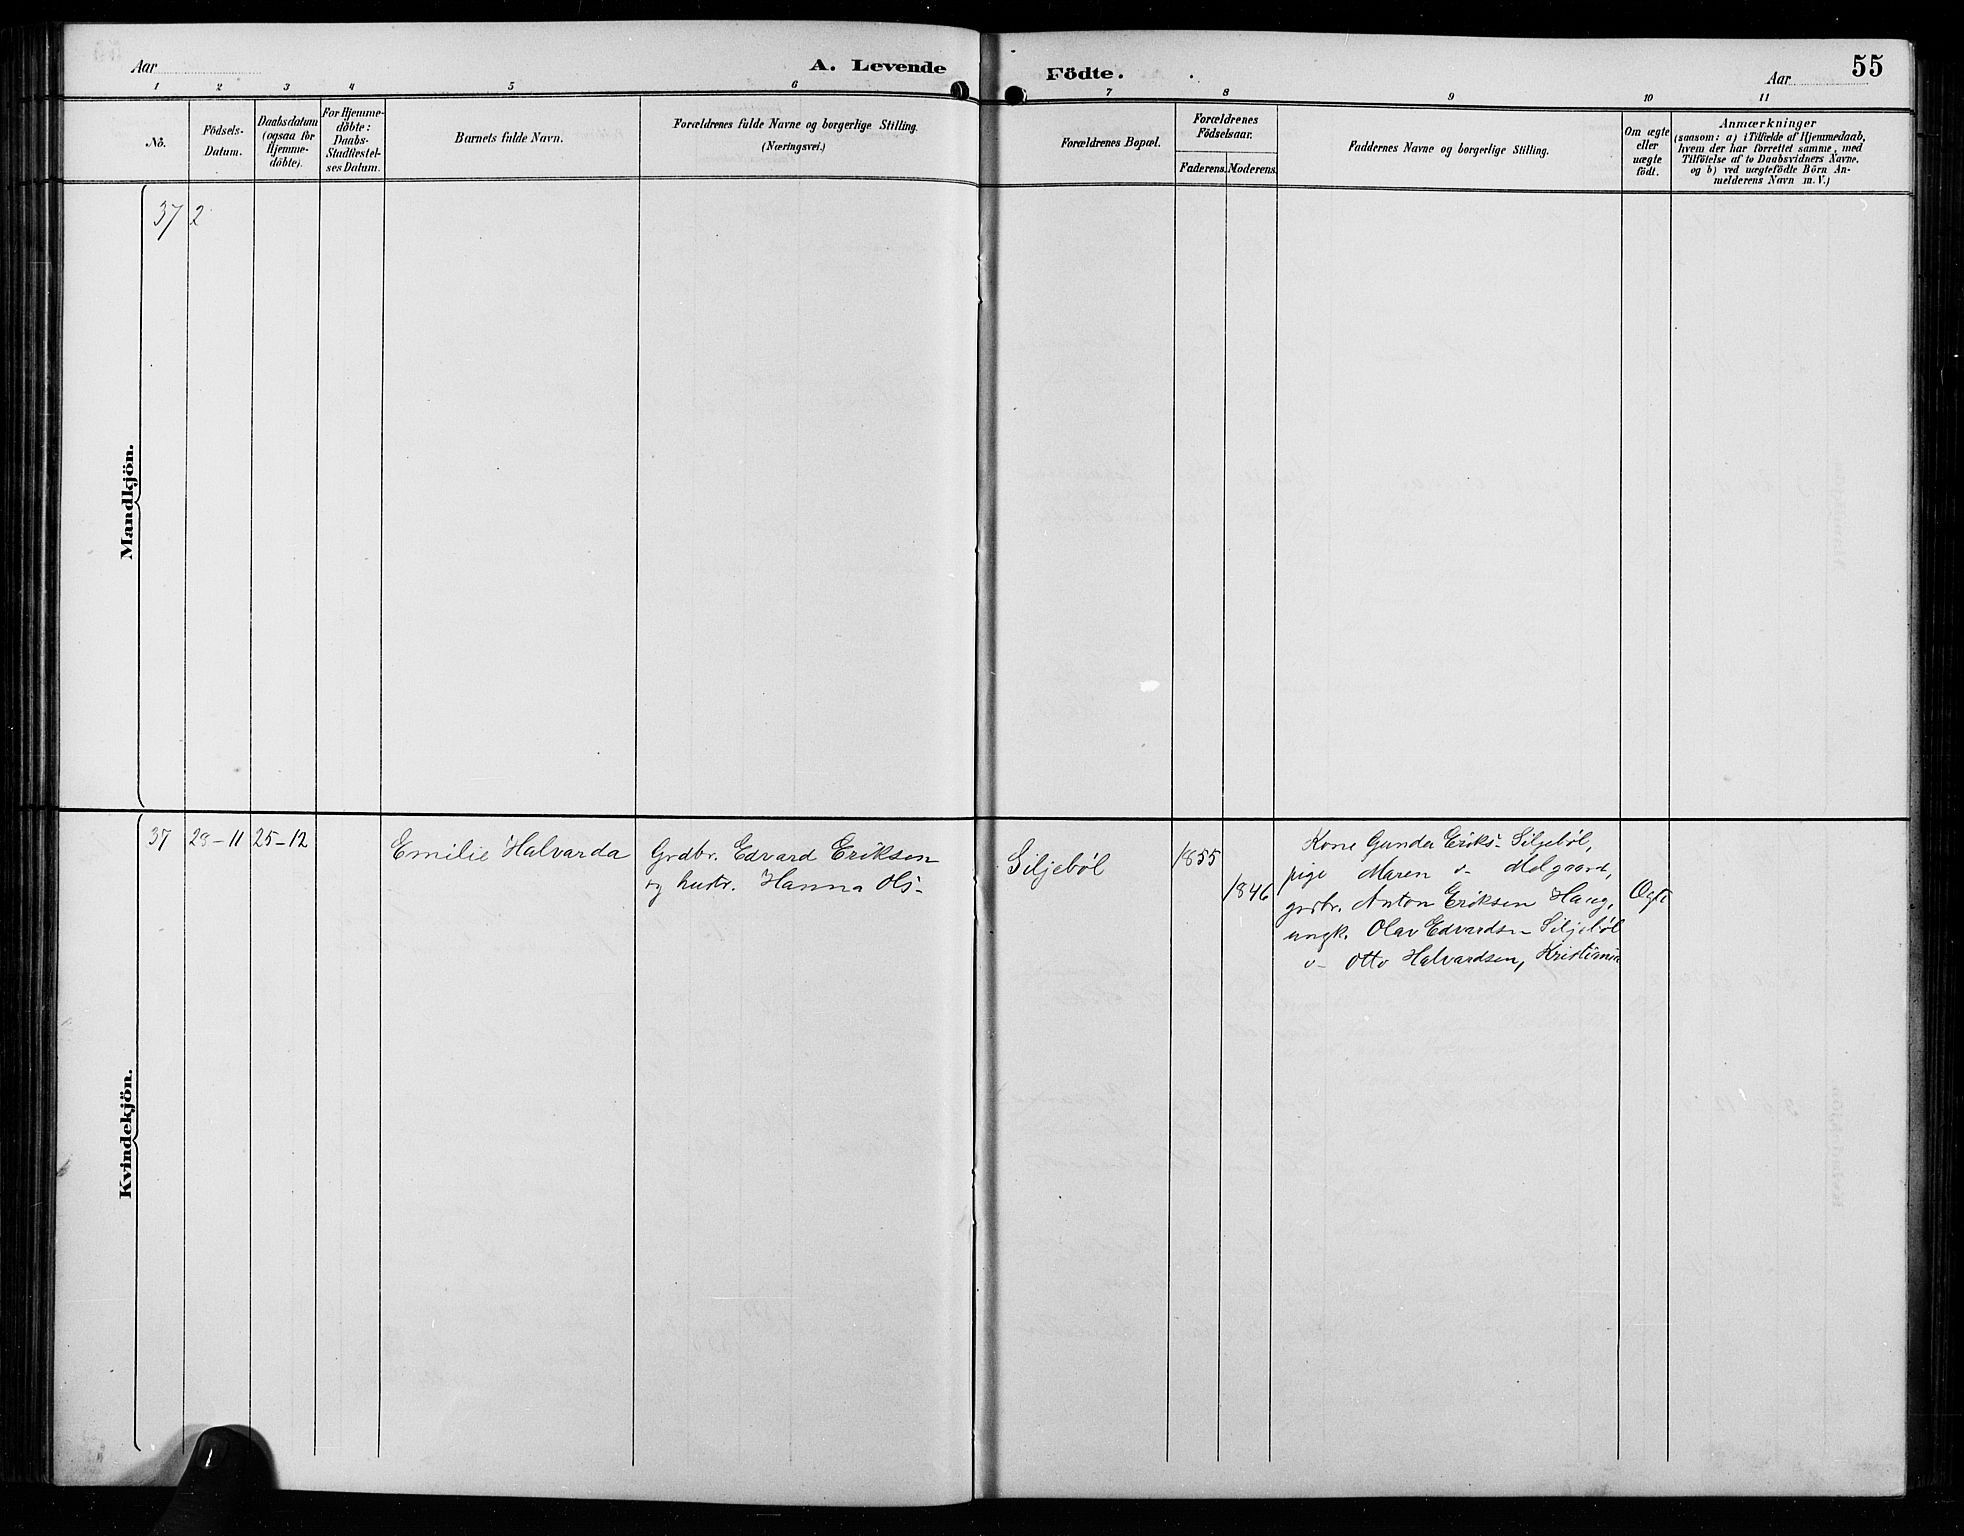 Aar
A. Levende
Födte.
Aar
55
1
2
3
4
5
6
7
8
9
10
11
No.
Födsels-
Datum.
Daabsdatum
(ogsaa for
Hjemme-
döbte).
For Hjemme-
döbte:
Daabs-
Stadfæstel-
ses Datum.
Barnets fulde Navn.
Forældrenes fulde Navne og borgerlige Stilling.
(Næringsvei.)
Forældrenes Bopæl.
Forældrenes
Födselsaar.
Faderens.
Moderens.
Faddernes Navne og borgerlige Stilling.
Om ægte
eller
uægte
födt.
Anmærkninger
(saasom: a) i Tilfælde af Hjemmedaab,
hvem der har forrettet samme, med
Tilföielse af to Daabsvidners Navne.
og b) ved uægtefödte Börn An-
melderens Navn m. V.)
Mandkjön.
37
2
Kvindekjön.
37
25-12
Emilie Halvarda
Grdbr. Edvard Eriksen
og hustr. Hanna Ols-
Siljeböl
1855
1846
Kone Gunder Eriks- Siljeböl,
pige Maren
grdbr. Anton Eriksen Haug,
ungk. Olav Edvards- Siljeböl
Otto Halvardsen, Kristiania
Ægte